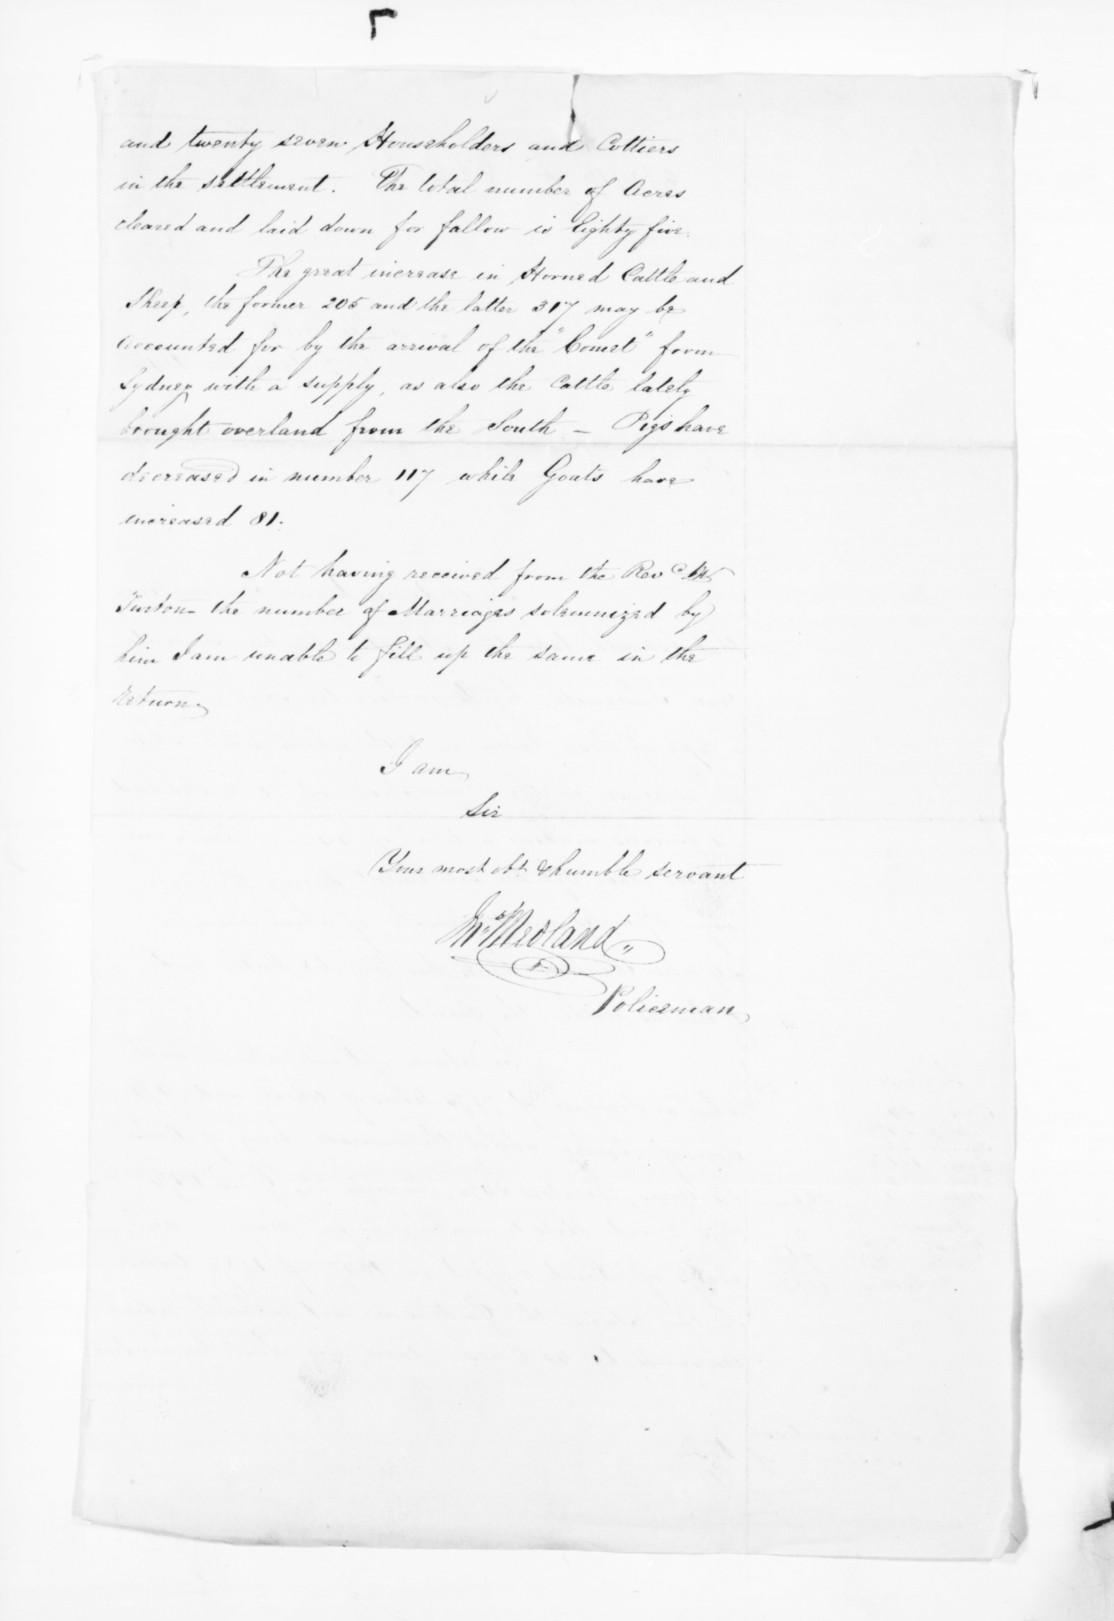 and twenty seven Householders and Cottiers
in the settlement. The total number of Acres
cleared and laid down for fallow is Eighty five.
The great increase in Horned Cattle and
Sheep, the former 205 and the latter 317 may be
accounted for by the arrival of the "Comet" from
Sydney with a supply, as also the Cattle lately
brought overland from the South – Pigs have
decreased in number 117 while Goats have
increased 81.
Not having received from the Revd Mr
Turton the number of Marriages solemnized by
him I am unable to fill up the same in the
return.
I am
Sir
Your most obt. & humble servant
Medland
Policeman